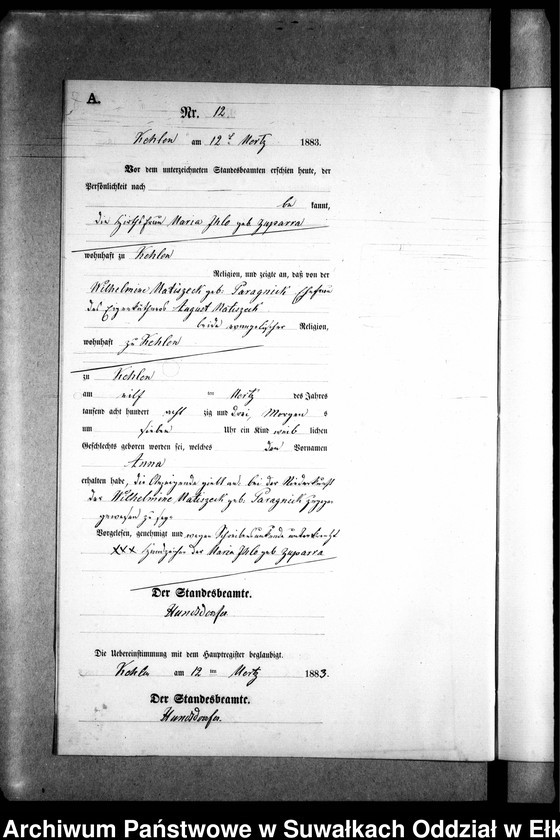 A.
Nr. 12.
Kehlen am 12t Mertz 1883.
Vor dem unterzeichneten Standesbeamten erschien heute, der
Persönlichkeit nach
be kannt,
die Wirthsfrau Maria geb Zuparra
wohnhaft zu Kehlen
Religion, und zeigte an, daß von der
Wilhelmine Matiszeck geb. Paragnick Ehefrau
des Eigenkäthners August Matiszeck
beide evangelischer Religion,
wohnhaft zu Kehlen
zu Kehlen
am eilf ten Mertz des Jahres
tausend acht hundert acht zig und drei, Morgen s
um sieben Uhr ein Kind weib lichen
Geschlechts geboren worden sei, welches den Vornamen
Anna
erhalten habe, die Anzeigende giebt an bei der Niederkunft
der Wilhelmine Matiszeck geb. Paragnick zugegen
gewesen zu sein
Vorgelesen, genehmigt und wegen Schreibensunkunde unterkreuzt
XXX Handzeichen der Maria geb. Zuparra
Der Standesbeamte.
Hundsdorfer.
Die Uebereinstimmung mit dem Hauptregister beglaubigt.
Kehlen am 12 ten Mertz 1883.
Der Standesbeamte.
Hundsdorfer.
Archiwum Państwowe w Suwałkach Oddział w Ełk